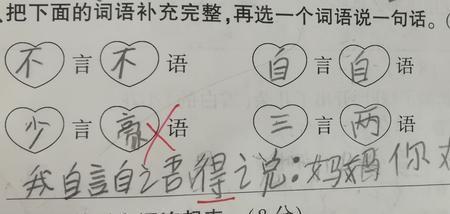 、把下面的词语补充完整,再选一个词语说一句话。(
不言不语 自言自语
少言豪语 三言两语
我自言自语得说:妈妈你
(8分)